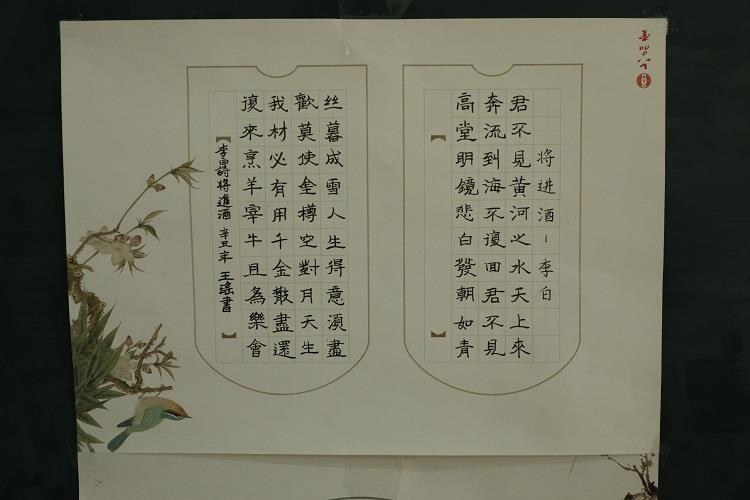 将进酒－李白
君不见黄河之水天上來
奔流到海不復回君不見
高堂明鏡悲白發朝如青
丝暮成雪人生得意須盡
歡莫使金樽空對月天生
我材必有用千金散盡還
復來烹羊宰牛且為樂會
李白詩將進酒 辛丑年 王瑤書